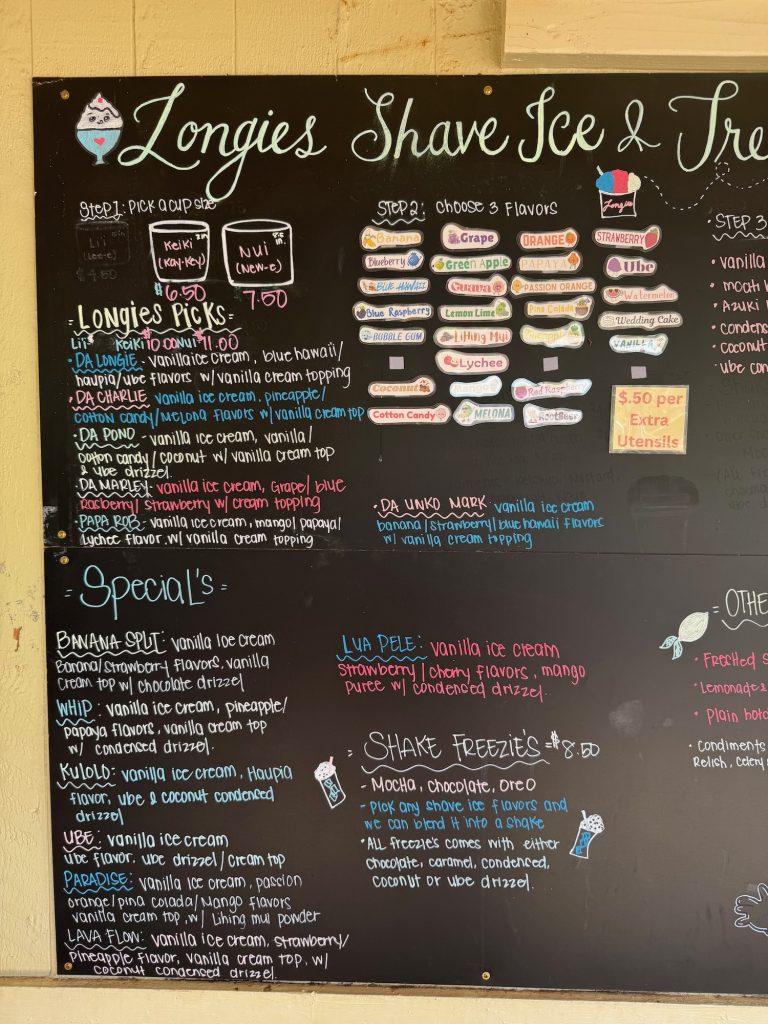 Longies Shave Ice & Tre
Step 1: Pick a cup size
Li'i
(Lee-e)
$4.50
Keiki
(Kay-Key)
$6.50
Nui
(New-e)
7.50
=Longies Picks=
Lii Keiki 10.00 Nui 11.00
·DA LONGIE - vanilla ice cream, blue hawaii/
haupia/ube flavors w/vanilla cream topping
·DA CHARLIE vanilla ice cream, pineapple/
cotton candy/Melona flavors w/vanilla cream top
·DA PONO - vanilla ice cream, vanilla/
cotton candy/coconut w/ vanilla cream top
& ube drizzel.
DA MARLEY- vanilla ice cream, Grape/blue
Rasberry/strawberry w/cream topping
PAPA ROB: vanilla ice cream, mango/papaya/
Lychee flavor w/ vanilla cream topping
STEP 2: Choose 3 Flavors
Longies
Banana
Grape
ORANGE
STRAWBERRY
Blueberry
Green Apple
PAPAYA
Ube
BLUE HAWAII
Guava
PASSION ORANGE
Watermelon
Blue Raspberry
Lemon Lime
Pina Colada
Wedding Cake
BUBBLE GUM
LiHing Mui
Pineapple
VANILLA
Lychee
Coconut
Mango
Red Raspberry
Cotton Candy
MELONA
RootBeer
$.50 per
Extra
Utensils
·DA UNKO MARK: vanilla ice cream
banana/strawberry/blue hawaii flavors
w/ vanilla cream topping
STEP 3
·vanilla
·moch
·Azuki
·condens
·coconut
·ube con
=Special's=
BANANA SPLIT: vanilla Ice cream
Banana/strawberry flavors, vanilla
cream top w/ chocolate drizzel
WHIP: vanilla ice cream, pineapple/
papaya flavors, vanilla cream top
w/ condensed drizzel.
KULOLO: vanilla ice cream, Haupia
flavor, ube & coconut condensed
drizzel
UBE: vanilla ice cream
ube flavor, ube drizzel/cream top
PARADISE: vanilla ice cream, passion
orange/pina colada/Mango flavors
vanilla cream top, w/ Lihing mui powder
LAVA FLOW: vanilla ice cream, strawberry/
pineapple flavor, vanilla cream top, w/
coconut condensed drizzel.
LUA PELE: vanilla ice cream
strawberry/cherry flavors, mango
puree w/ condensed drizzel.
=SHAKE FREEZIE'S=$8.50
- Mocha, chocolate, oreo
- Pick any shave ice flavors and
we can blend it into a shake
·ALL freezie's comes with either
chocolate, caramel, condensed,
coconut or ube drizzel.
=OTHE
·Freshed S
·Lemonade &
·Plain hotd
·Condiments
Relish, celery